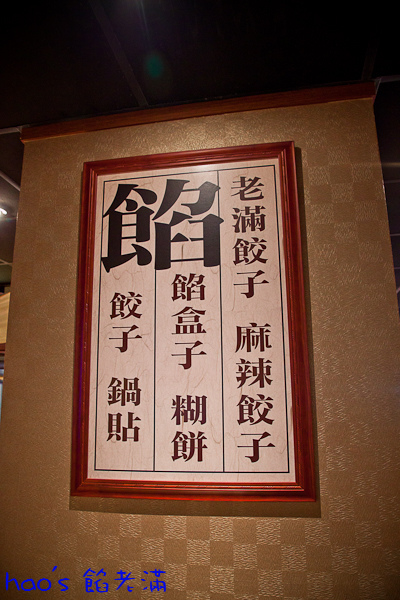 老滿餃子 麻辣餃子
餡
餡盒子 糊餅
餃子 鍋貼
hao's 餡老滿